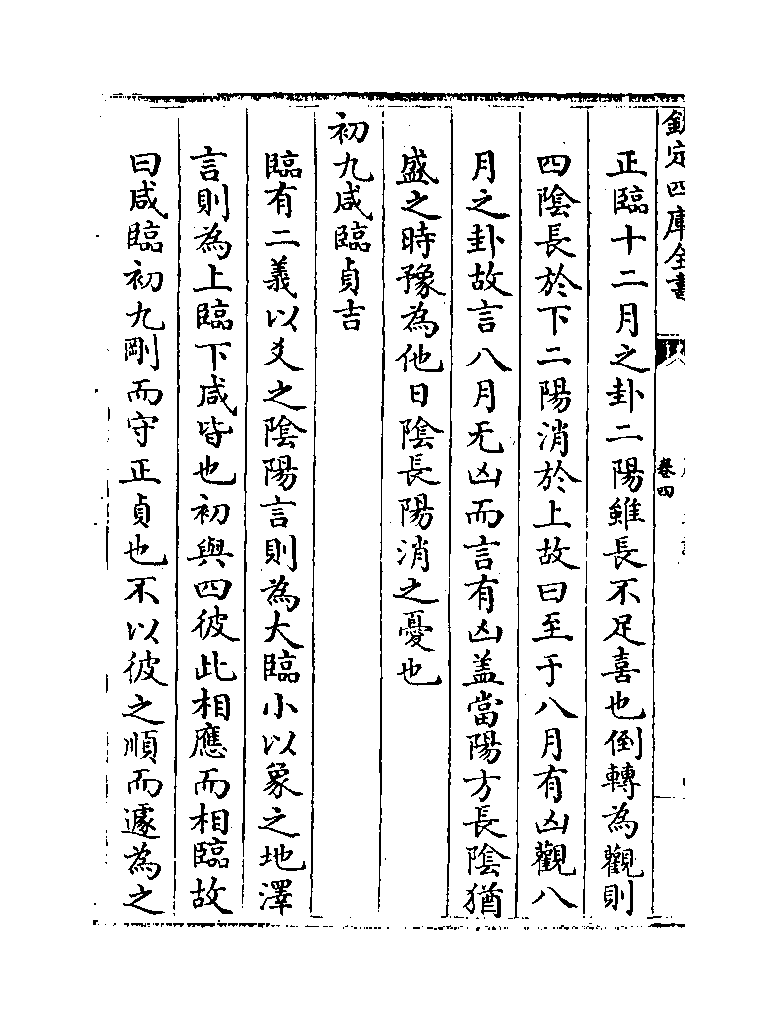 欽定四庫全書
卷四
正臨十二月之卦二陽雖長不足喜也倒轉為觀則
四陰長於下二陽消於上故曰至于八月有凶觀八
月之卦故言八月无凶而言有凶盖當陽方長陰猶
盛之時豫為他日陰長陽消之憂也
初九咸臨貞吉
臨有二義以爻之陰陽言則為大臨小以象之地澤
言則為上臨下咸皆也初與四彼此相應而相臨故
曰咸臨初九剛而守正貞也不以彼之順而遽為之